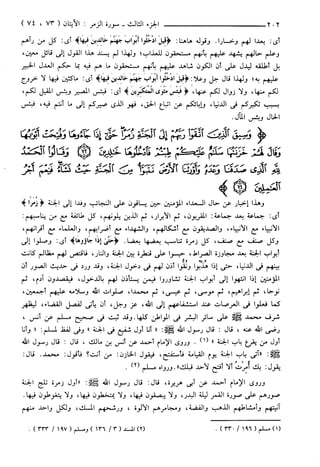 ٢٠٢ الجزء الثالث - سورة الزمر: الآيتان (٧٣، ٧٤)
أي: بعدا لهم وخسارا. وقوله هاهنا: ﴿قِيلَ ادْخُلُوا أَبْوَابَ جَهَنَّمَ خَالِدِينَ فِيهَا﴾ أي: كل من رآهم
وعلم حالهم يشهد عليهم بأنهم مستحقون للعذاب؛ ولهذا لم يسند هذا القول إلى قائل معين،
بل أطلقه ليدل على أن الكون شاهد عليهم بأنهم مستحقون ما هم فيه بما حكم العدل الخبير
عليهم به؛ ولهذا قال جل وعلا: ﴿قِيلَ ادْخُلُوا أَبْوَابَ جَهَنَّمَ خَالِدِينَ فِيهَا﴾ أي: ماكثين فيها لا خروج
لكم منها، ولا زوال لكم عنها، ﴿فَبِئْسَ مَثْوَى الْمُتَكَبِّرِينَ﴾ أي: فبئس المصير وبئس المقيل لكم،
بسبب تكبركم في الدنيا، وإبائكم عن اتباع الحق، فهو الذي صيركم إلى ما أنتم فيه، فبئس
الحال وبئس المآل.
﴿وَسِيقَ الَّذِينَ اتَّقَوْا رَبَّهُمْ إِلَى الْجَنَّةِ زُمَرًا حَتَّى إِذَا جَاءُوهَا وَفُتِحَتْ أَبْوَابُهَا
وَقَالَ لَهُمْ خَزَنَتُهَا سَلَامٌ عَلَيْكُمْ طِبْتُمْ فَادْخُلُوهَا خَالِدِينَ (٧٣) وَقَالُوا الْحَمْدُ لِلَّهِ
الَّذِي صَدَقَنَا وَعْدَهُ وَأَوْرَثَنَا الْأَرْضَ نَتَبَوَّأُ مِنَ الْجَنَّةِ حَيْثُ نَشَاءُ فَنِعْمَ أَجْرُ
الْعَامِلِينَ (٧٤)﴾
وهذا إخبار عن حال السعداء المؤمنين حين يساقون على النجائب وفدا إلى الجنة ﴿زُمَرًا﴾
أي: جماعة بعد جماعة: المقربون، ثم الأبرار، ثم الذين يلونهم، ثم الذين يلونهم، كل طائفة مع من يناسبهم:
الأنبياء مع الأنبياء، والصديقون مع أشكالهم، والشهداء مع أضرابهم، والعلماء مع أقرانهم،
وكل صنف مع صنف، كل زمرة تناسب بعضها بعضا. ﴿حَتَّى إِذَا جَاءُوهَا﴾ أي: وصلوا إلى
أبواب الجنة بعد مجاوزة الصراط، حبسوا على قنطرة بين الجنة والنار، فاقتص لهم مظالم كانت
بينهم في الدنيا، حتى إذا هُذِّبُوا ونُقُّوا أذن لهم في دخول الجنة، وقد ورد في حديث الصور أن
المؤمنين إذا انتهوا إلى أبواب الجنة تشاوروا فيمن يستأذن لهم بالدخول، فيقصدون آدم، ثم
نوحا، ثم إبراهيم، ثم موسى، ثم عيسى، ثم محمدا، صلوات الله وسلامه عليهم أجمعين،
كما فعلوا في العرصات عند استشفاعهم إلى الله، عز وجل، أن يأتي لفصل القضاء، ليظهر
شرف محمد ﷺ على سائر البشر في المواطن كلها. وقد ثبت في صحيح مسلم عن أنس،
رضي الله عنه، قال: قال رسول الله ﷺ: «أنا أول شفيع في الجنة» وفي لفظ لمسلم: «وأنا
أول من يقرع باب الجنة» (١). وروى الإمام أحمد عن أنس بن مالك، قال: قال رسول الله
ﷺ: «آتي باب الجنة يوم القيامة فأستفتح، فيقول الخازن: من أنت؟ فأقول: محمد. قال:
يقول: بك أُمِرْتُ ألا أفتح لأحد قبلك». ورواه مسلم (٢).
وروى الإمام أحمد عن أبي هريرة، قال: قال رسول الله ﷺ: «أول زمرة تلج الجنة
صورهم على صورة القمر ليلة البدر، ولا يبصقون فيها، ولا يمتخطون فيها، ولا يتغوطون فيها،
آنيتهم وأمشاطهم الذهب والفضة، ومجامرهم الألوة، ورشحهم المسك، ولكل واحد منهم
(١) مسلم (١٩٦/ ٣٣٠). (٢) المسند (٣/ ١٣٦) ومسلم (١٩٧/ ٣٣٣).